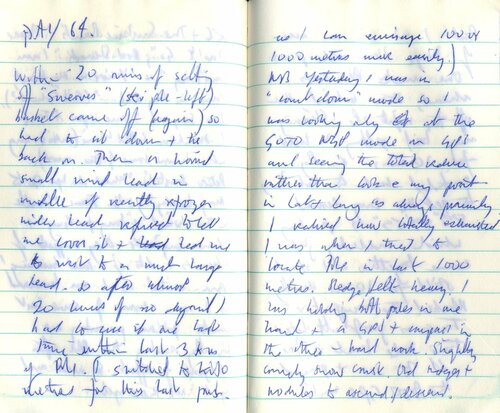 DAY 64.
Within 20 mins of setting
off "Swerves" (ski pole - left)
basket came off (again) so
had to sit down + tie
back on. Then a
small wind lead in
middle of recently frozen
wider lead refused to let
me cover it + lead led me
to west to a much larger
lead. So after almost
20 hours of no
had to use it one last
time within last 3 kms
of Pole. I switched to
metres for this last part.
as I can envisage 100 or
1000 metres more easily.)
NB Yesterday I was in
"count down" mode so I
was looking only at the
GOTO mode on GPS
and seeing the total reduce
rather than look @ my position
in Lat + Long as always previously
I realised how totally exhausted
I was when I tried to
locate Pole in last 1000
metres. Sledge felt heavy, I
was holding both poles in one
hand + a GPS + compass in
the other - hard work. Slightly
snow crust old ridges +
nodules to ascend/descend.